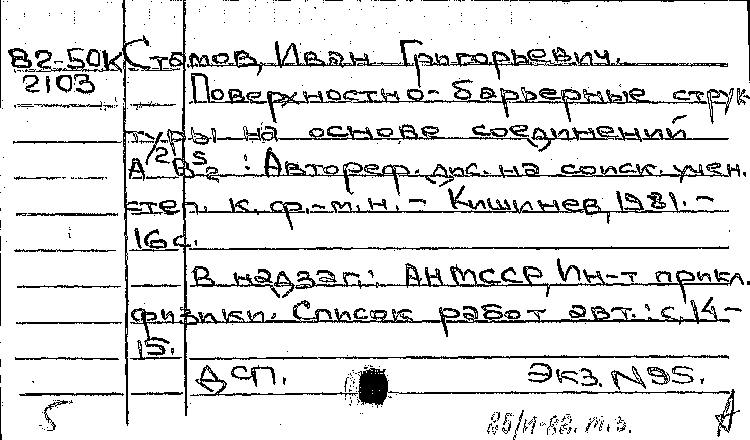 В2-50К Стамов, Иван Григорьевич.
2103 Поверхностно-барьерные струк
туры на основе соединений
А/2 В5 2 : Автореф. дис. на соиск. учен.
степ. к. ф.-м.н. - Кишинев, 1981. -
16 с.
В надзаг.: АН МССР, Ин-т прикл.
физики. Список работ авт.: с. 14-
15.
ДСП. Экз. N95.
5 25/VI-82. т.з. А